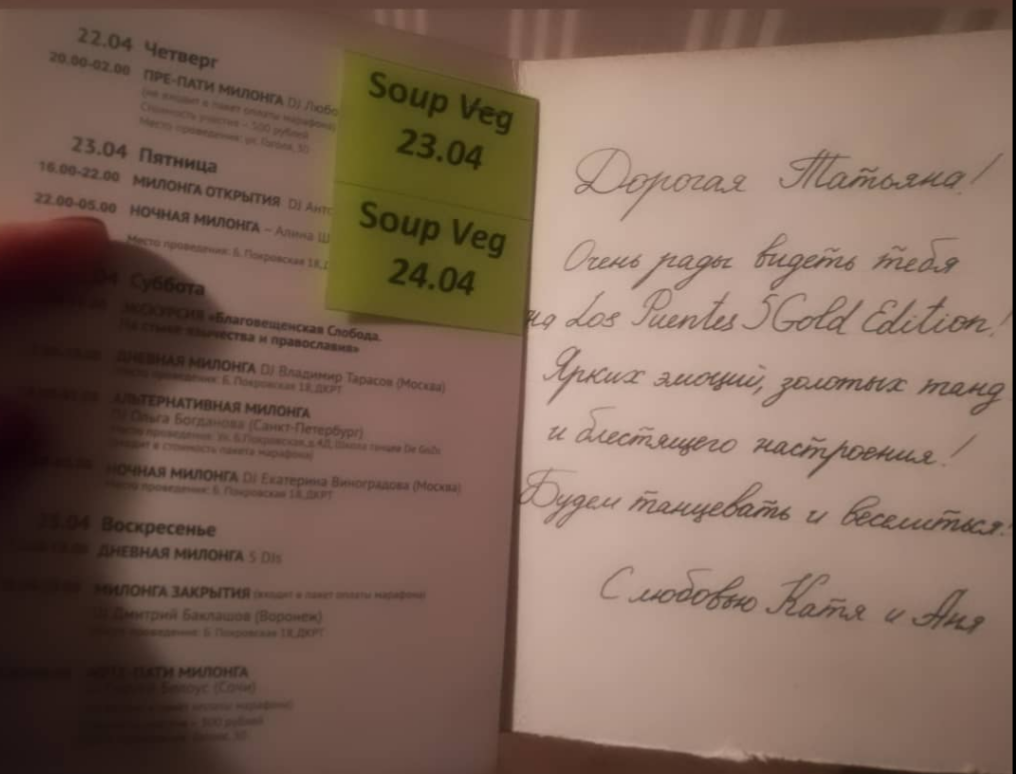 22.04 Четверг
20.00-02.00 ПРЕ-ПАТИ МИЛОНГА DJ Любо
(не входит в пакет оплаты марафона)
Стоимость участия – 500 рублей
Место проведения: ул. Гоголя,
23.04 Пятница
16.00-22.00 МИЛОНГА ОТКРЫТИЯ DJ Анто
22.00-05.00 НОЧНАЯ МИЛОНГА – Алина Ш
Место проведения: Б. Покровская 18,
04 Суббота
ЭКСКУРСИЯ «Благовещенская Слобода.
На стыке язычества и православия»
ДНЕВНАЯ МИЛОНГА DJ Владимир Тарасов (Москва)
Место проведения: Б. Покровская 18, ДКРТ
АЛЬТЕРНАТИВНАЯ МИЛОНГА
DJ Ольга Богданова (Санкт-Петербург)
Место проведения: ул. Б.Покровская, Школа танцев
(входит в стоимость пакета марафона)
НОЧНАЯ МИЛОНГА DJ Екатерина Виноградова (Москва)
Место проведения: Б. Покровская 18, ДКРТ
25.04 Воскресенье
ДНЕВНАЯ МИЛОНГА 5 DJs
МИЛОНГА ЗАКРЫТИЯ (входит в пакет оплаты марафона)
DJ Дмитрий Баклашов (Воронеж)
Место проведения: Б. Покровская 18, ДКРТ
ПАТИ МИЛОНГА
Белоус (Сочи)
500 рублей
Soup Veg
23.04
Soup Veg
24.04
Дорогая Татьяна!
Очень рады видеть тебя
на Los Puentes 5 Gold Edition!
Ярких эмоций, золотых танд
и блестящего настроения!
Будем танцевать и веселиться!
С любовью Катя и Аня